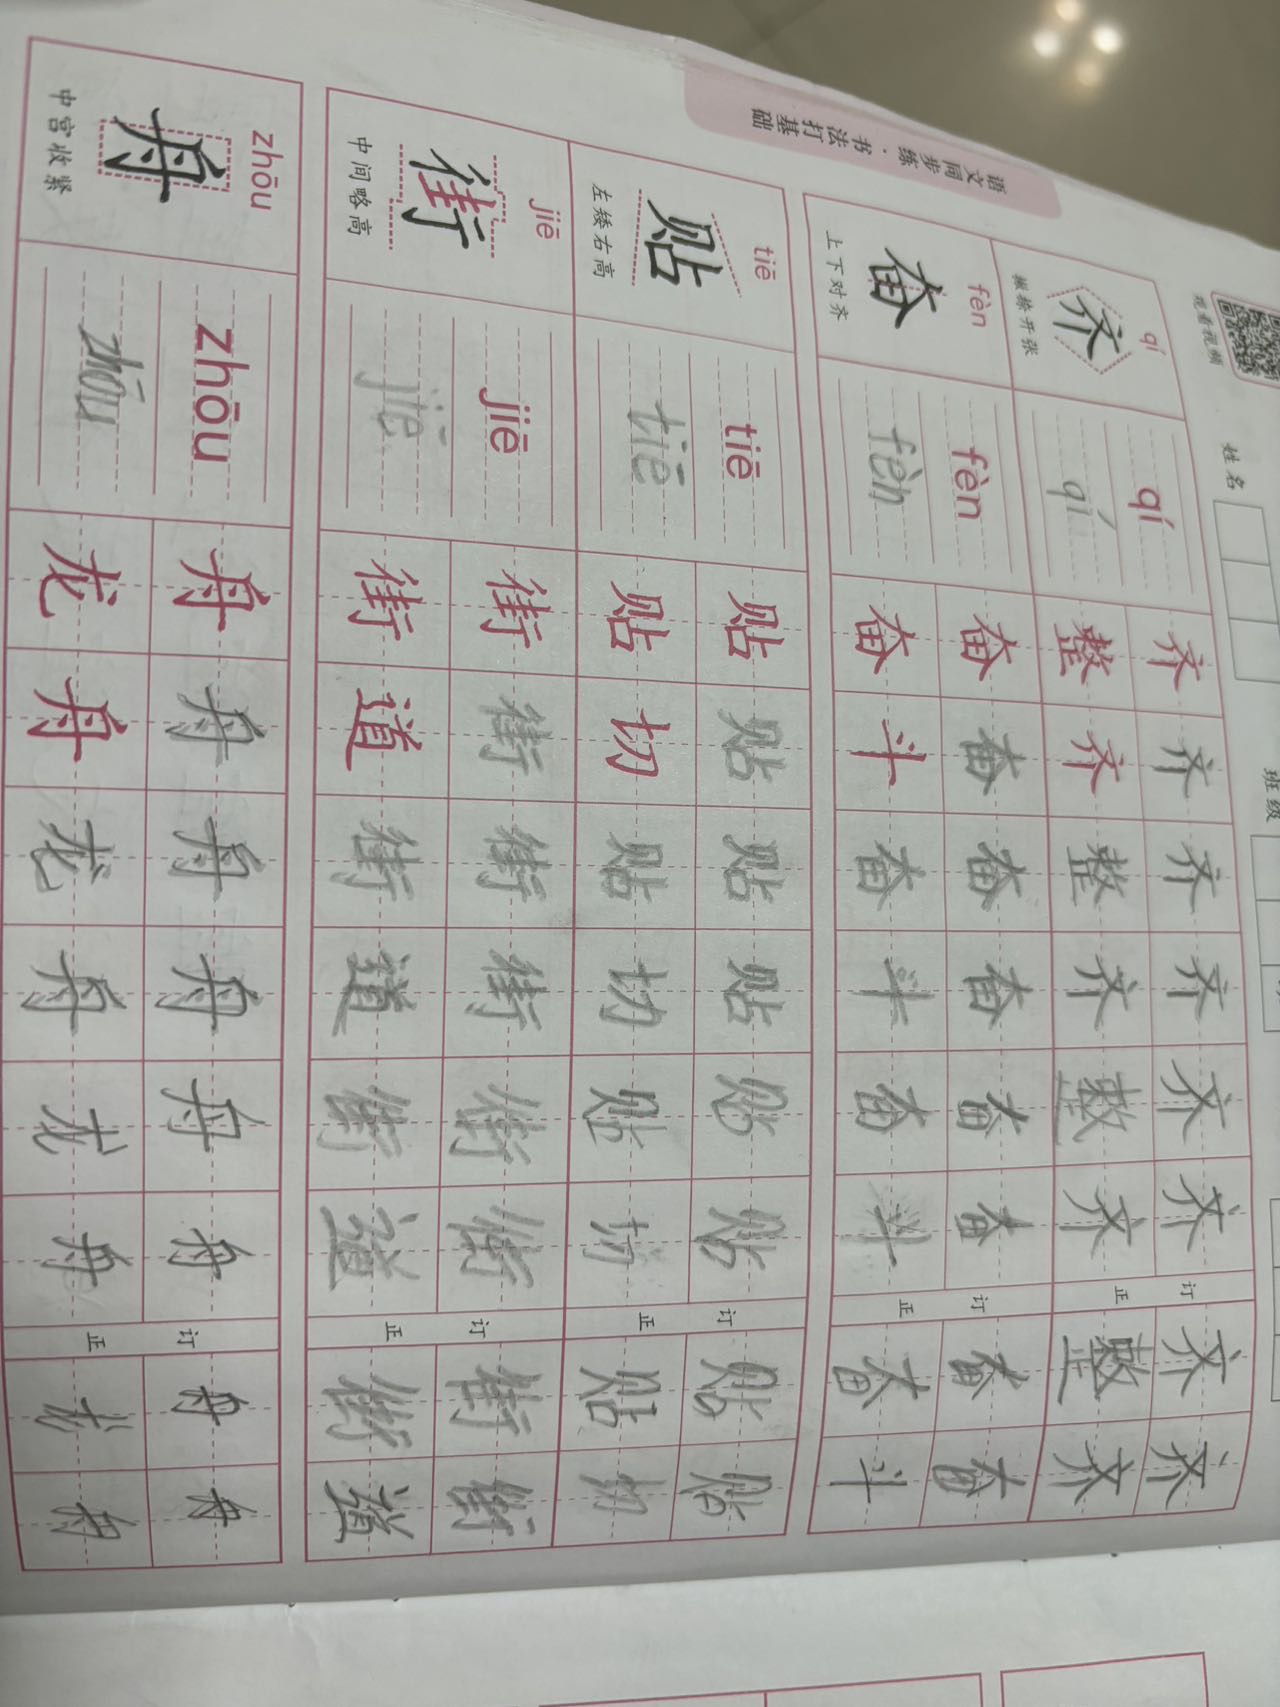 语文同步练·书法打基础
观看视频
姓名
班级
qí
齐
撇捺开张
qí
qí
齐 齐 齐 齐 齐 齐 订 齐 齐
整 齐 整 齐 整 齐 正 整 齐
fèn
奋
上下对齐
fèn
fèn
奋 奋 奋 奋 奋 奋 订 奋 奋
奋 斗 奋 斗 奋 斗 正 奋 斗
tiē
贴
左矮右高
tiē
tiē
贴 贴 贴 贴 贴 贴 订 贴 贴
贴 切 贴 切 贴 切 正 贴 切
jiē
街
中间略高
jiē
jiē
街 街 街 街 街 街 订 街 街
街 道 街 道 街 道 正 街 道
zhōu
舟
中宫收紧
zhōu
zhōu
舟 舟 舟 舟 舟 舟 订 舟 舟
龙 舟 龙 舟 龙 舟 正 龙 舟